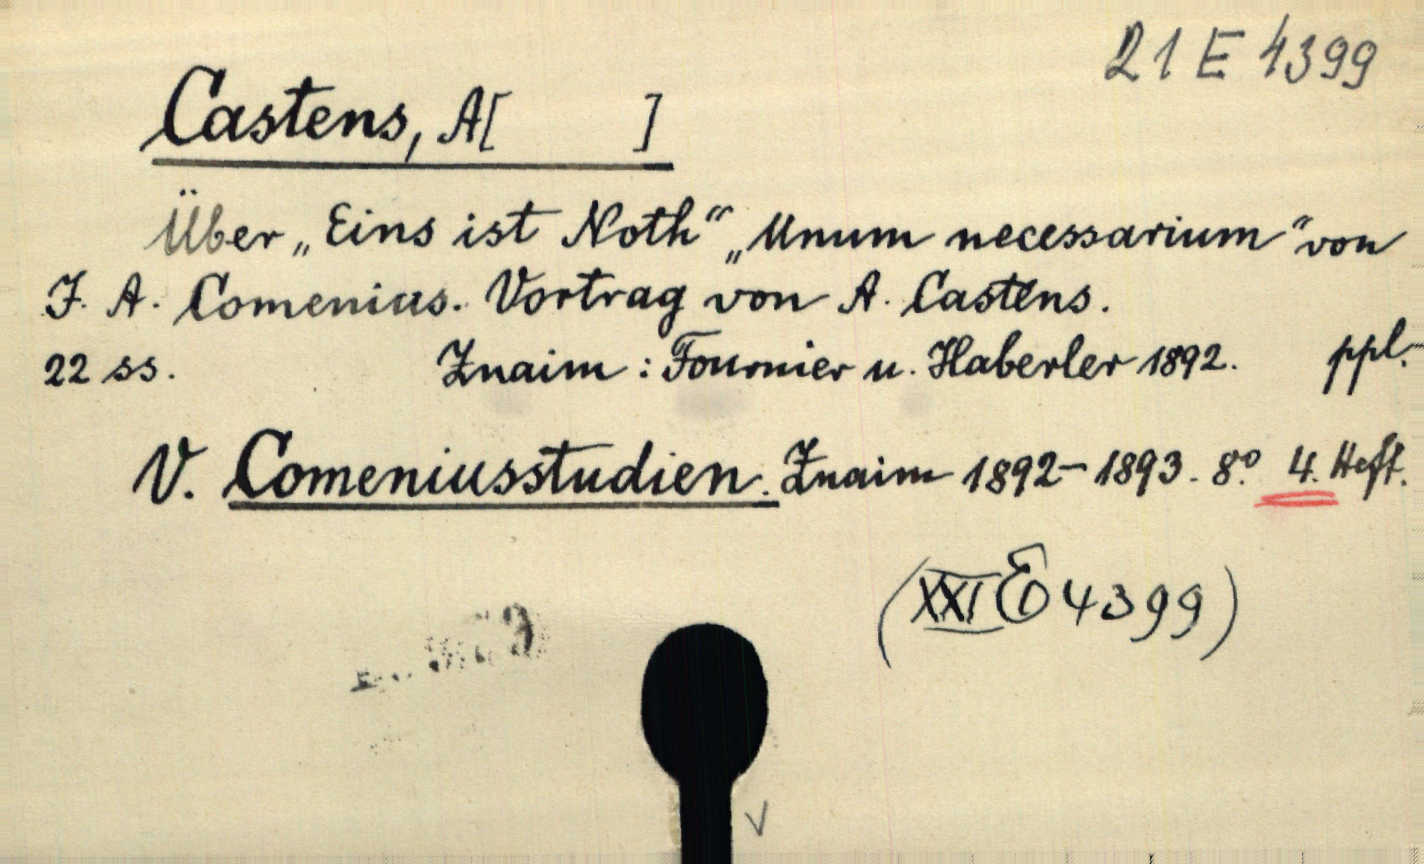 21 E 4399
Castens, A[ ]
Über „Eins ist Noth“ „Unum necessarium“ von
J. A. Comenius. Vortrag von A. Castens.
22 ss. Znaim : Fournier u. Haberler 1892. ppl.
V. Comeniusstudien. Znaim 1892–1893. 8.° 4. Heft.
(XXI E 4399)